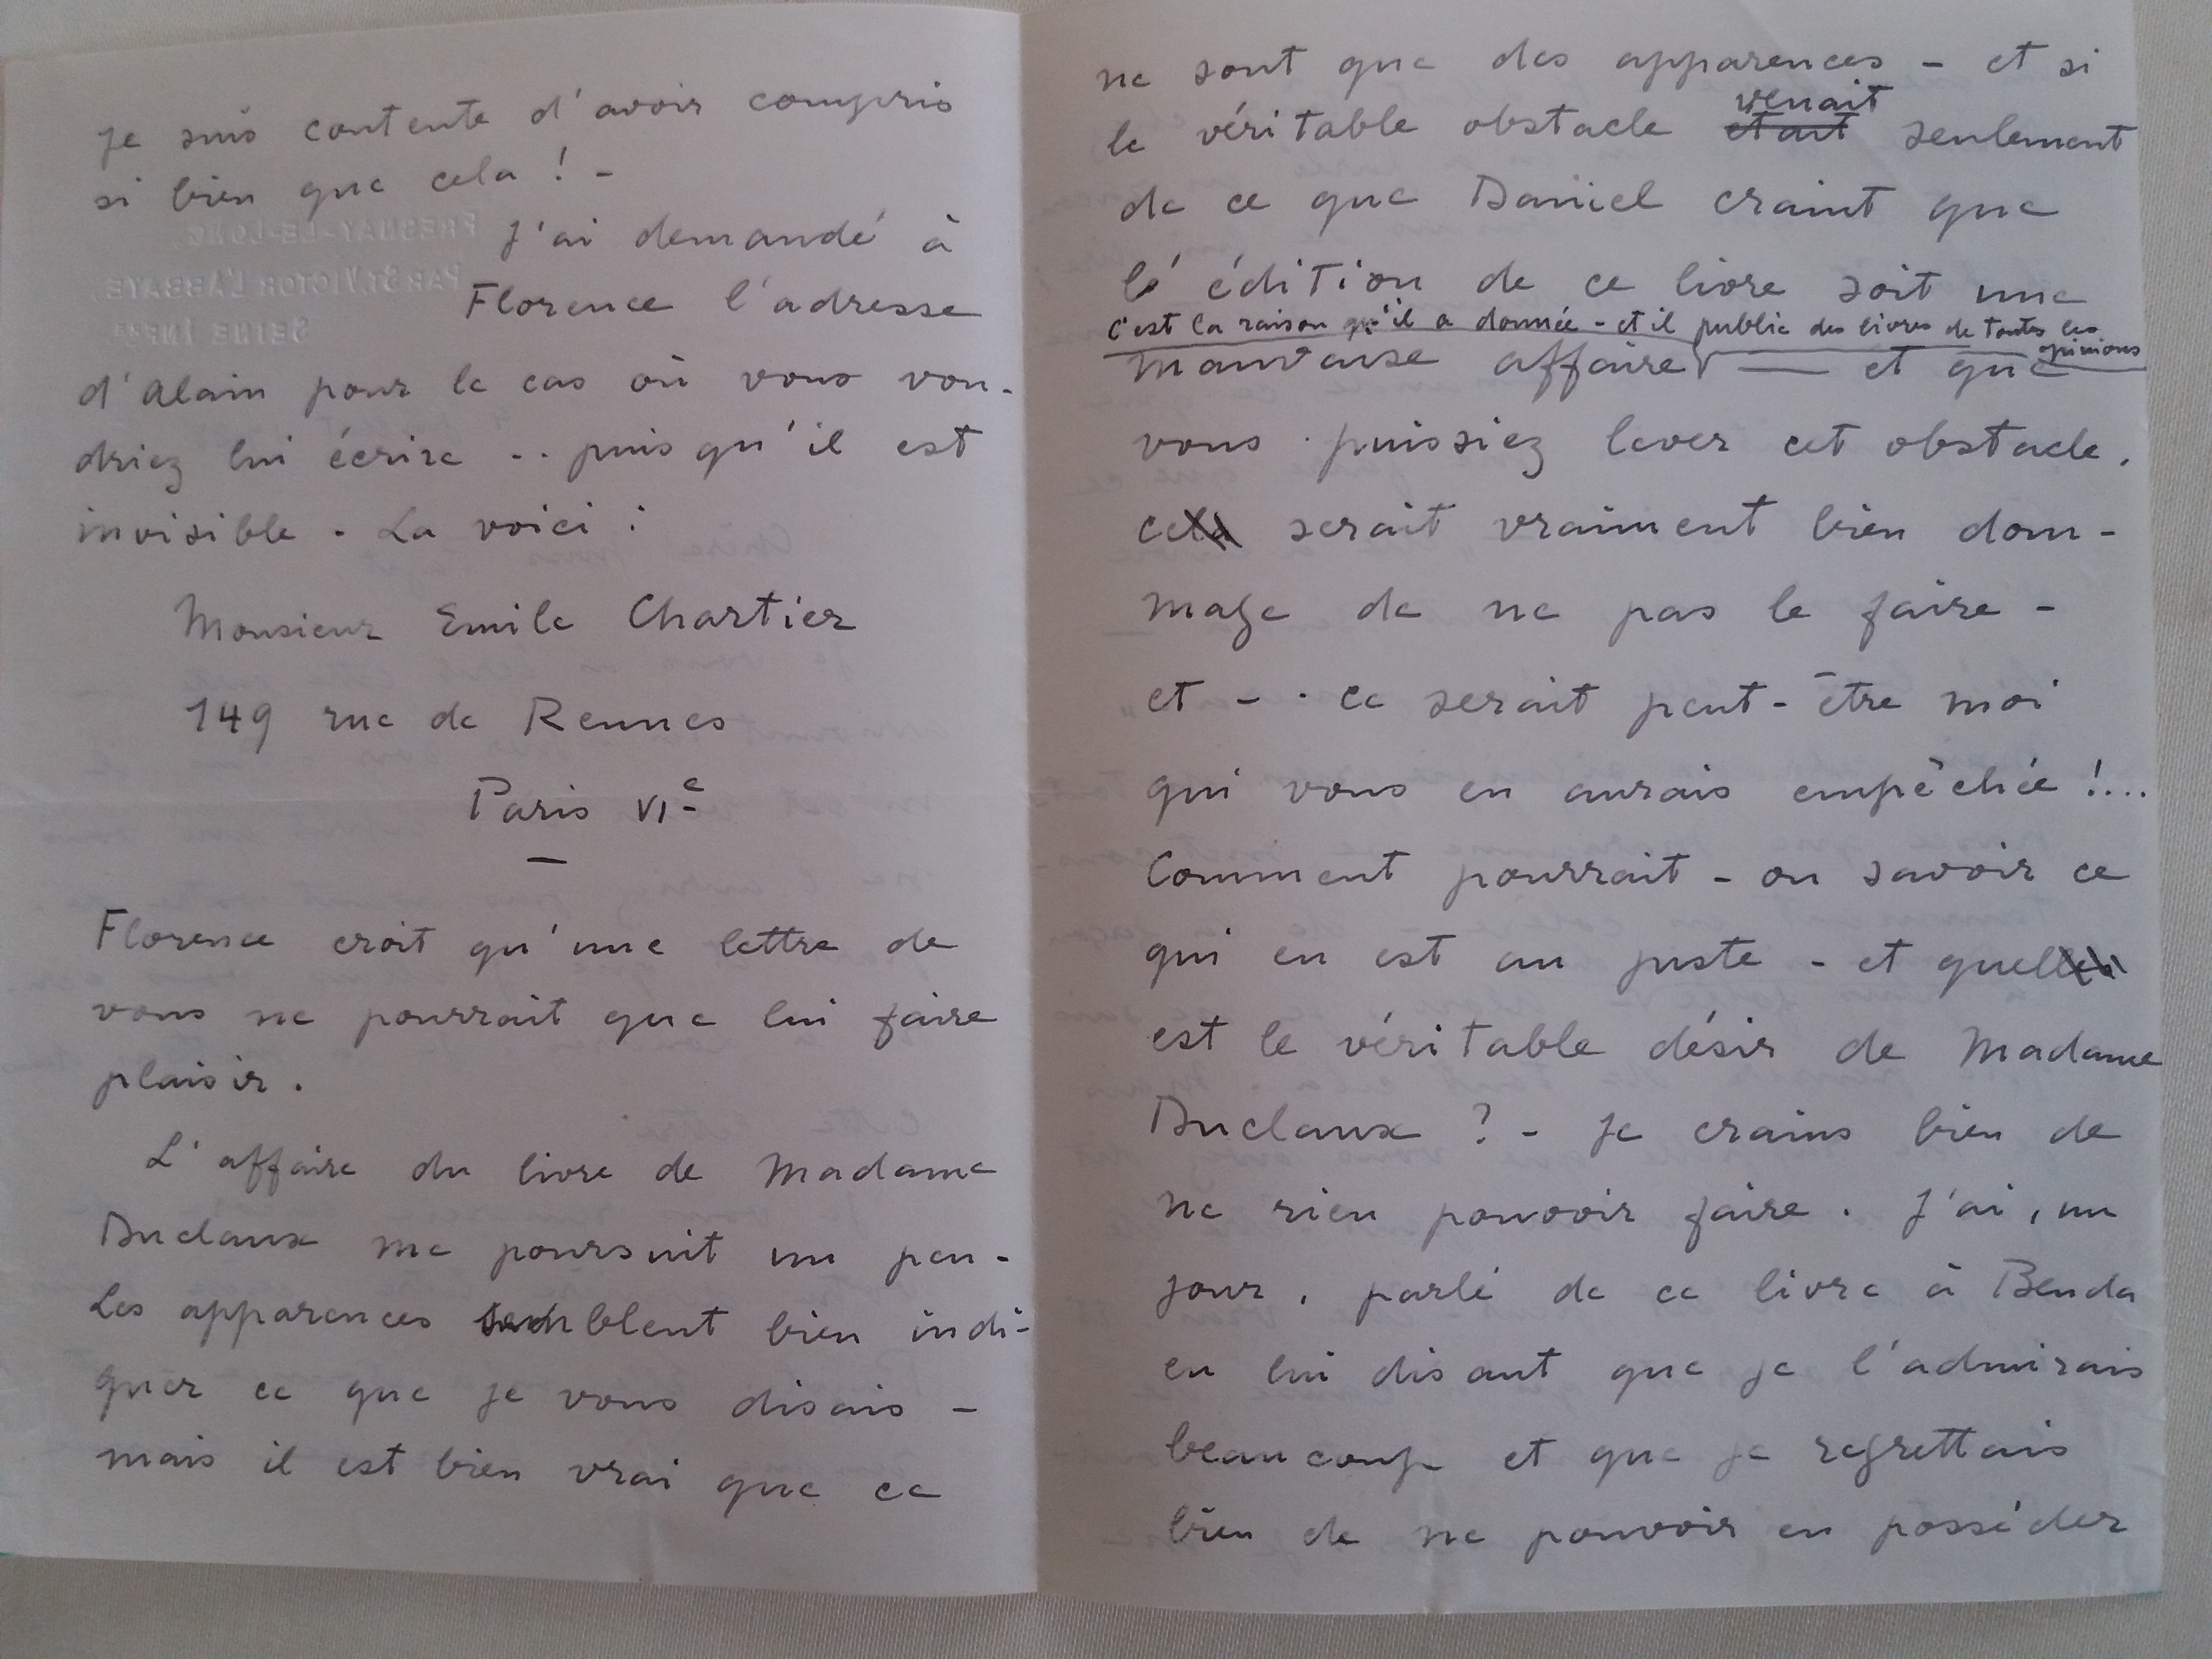 je suis contente d'avoir compris
si bien que cela ! -
J'ai demandé à
Florence l'adresse
d'Alain pour le cas où vous vou-
driez lui écrire .. puis qu'il est
invisible . La voici :
Monsieur Emile Chartier
149 rue de Rennes
Paris VIe
Florence croit qu'une lettre de
vous ne pourrait que lui faire
plaisir .
L'affaire du livre de Madame
Duclaux me poursuit un peu -
Les apparences semblent bien indi-
quer ce que je vous disais -
mais il est bien vrai que ce
FRESNAY-LE-LONG,
PAR ST VICTOR L'ABBAYE,
SEINE INFRE
ne sont que des apparences - et si
venait
le véritable obstacle etait seulement
de ce que Daniel craint que
l'édition de ce livre soit une
c'est la raison qu'il a donnée - et il publie des livres de toutes les
opinions
mauvaise affaire — et que
vous puissiez lever cet obstacle,
cela serait vraiment bien dom-
mage de ne pas le faire -
et - . ce serait peut-être moi
qui vous en aurais empêchée !...
Comment pourrait-on savoir ce
qui en est au juste - et quelles
est le véritable désir de Madame
Duclaux ? - Je crains bien de
ne rien pouvoir faire . J'ai, un
jour, parlé de ce livre à Benda
en lui disant que je l'admirais
beaucoup et que je regrettais
bien de ne pouvoir en posséder